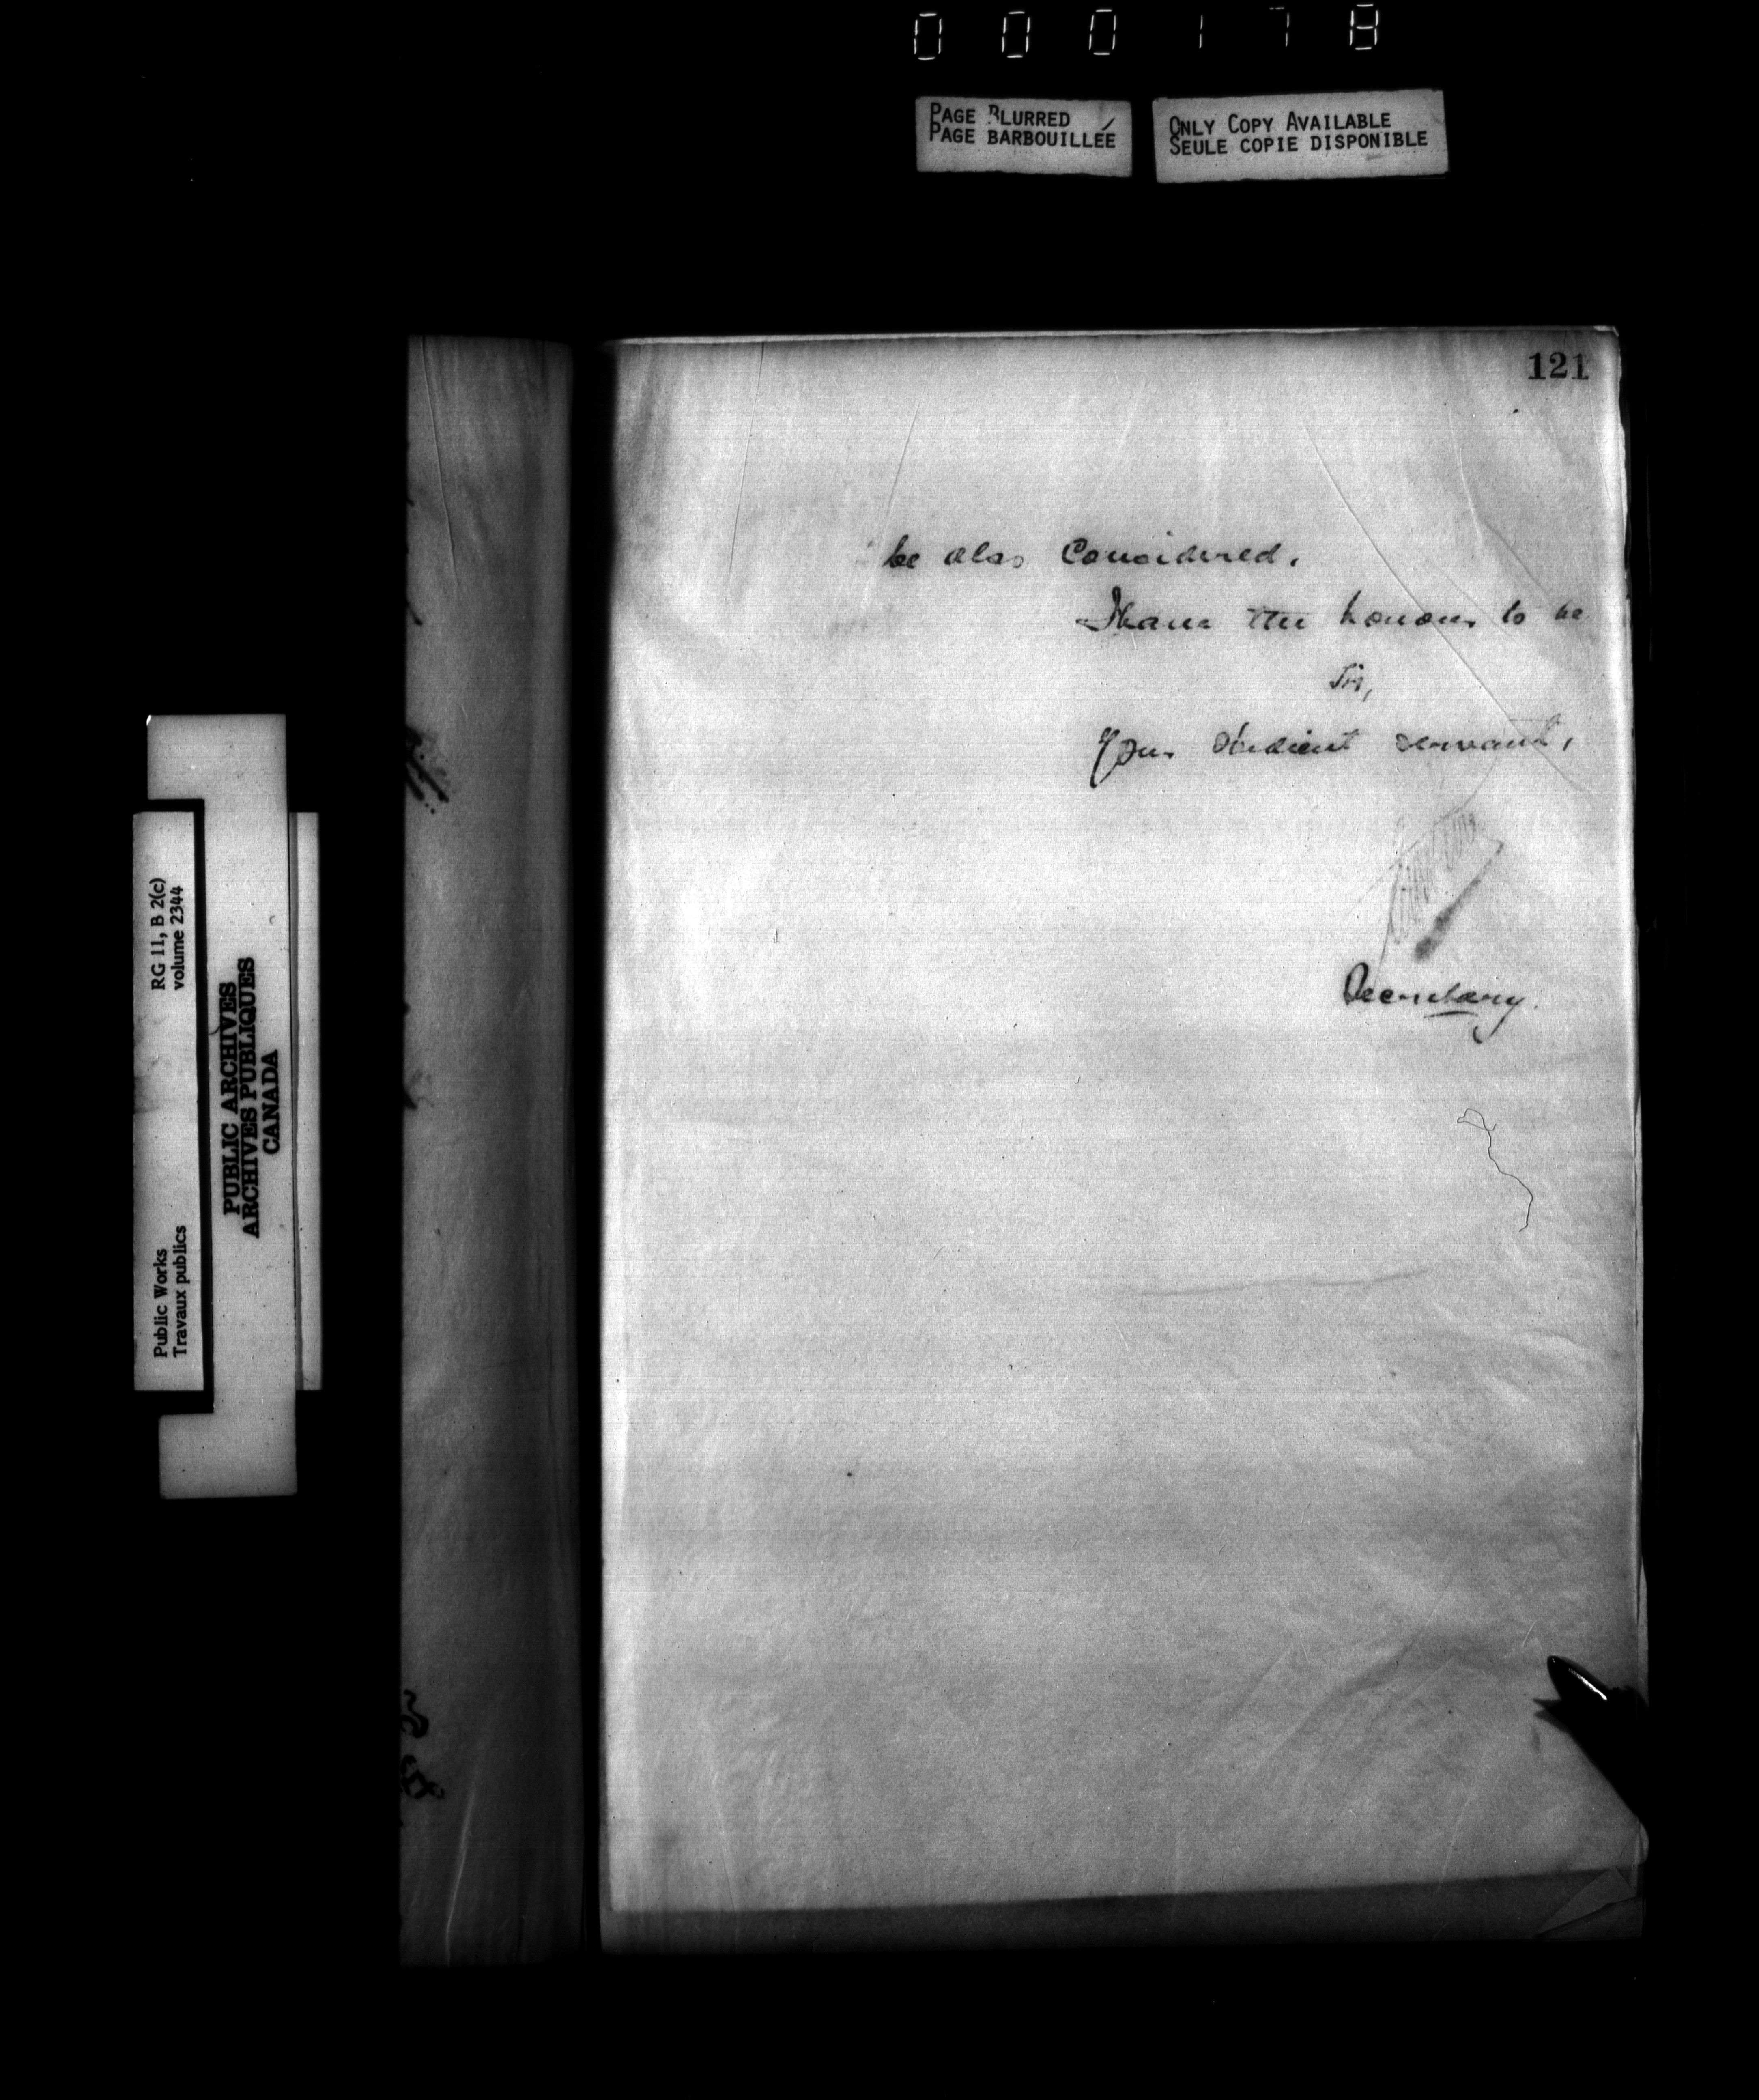 000178
PAGE BLURRED
PAGE BARBOUILLÉE
ONLY COPY AVAILABLE
SEULE COPIE DISPONIBLE
121
be also Considered.
I have the honour to be
Sir,
Your obedient servant,
Secretary.
RG 11, B 2(c)
volume 2344
Public Works
Travaux publics
PUBLIC ARCHIVES
ARCHIVES PUBLIQUES
CANADA